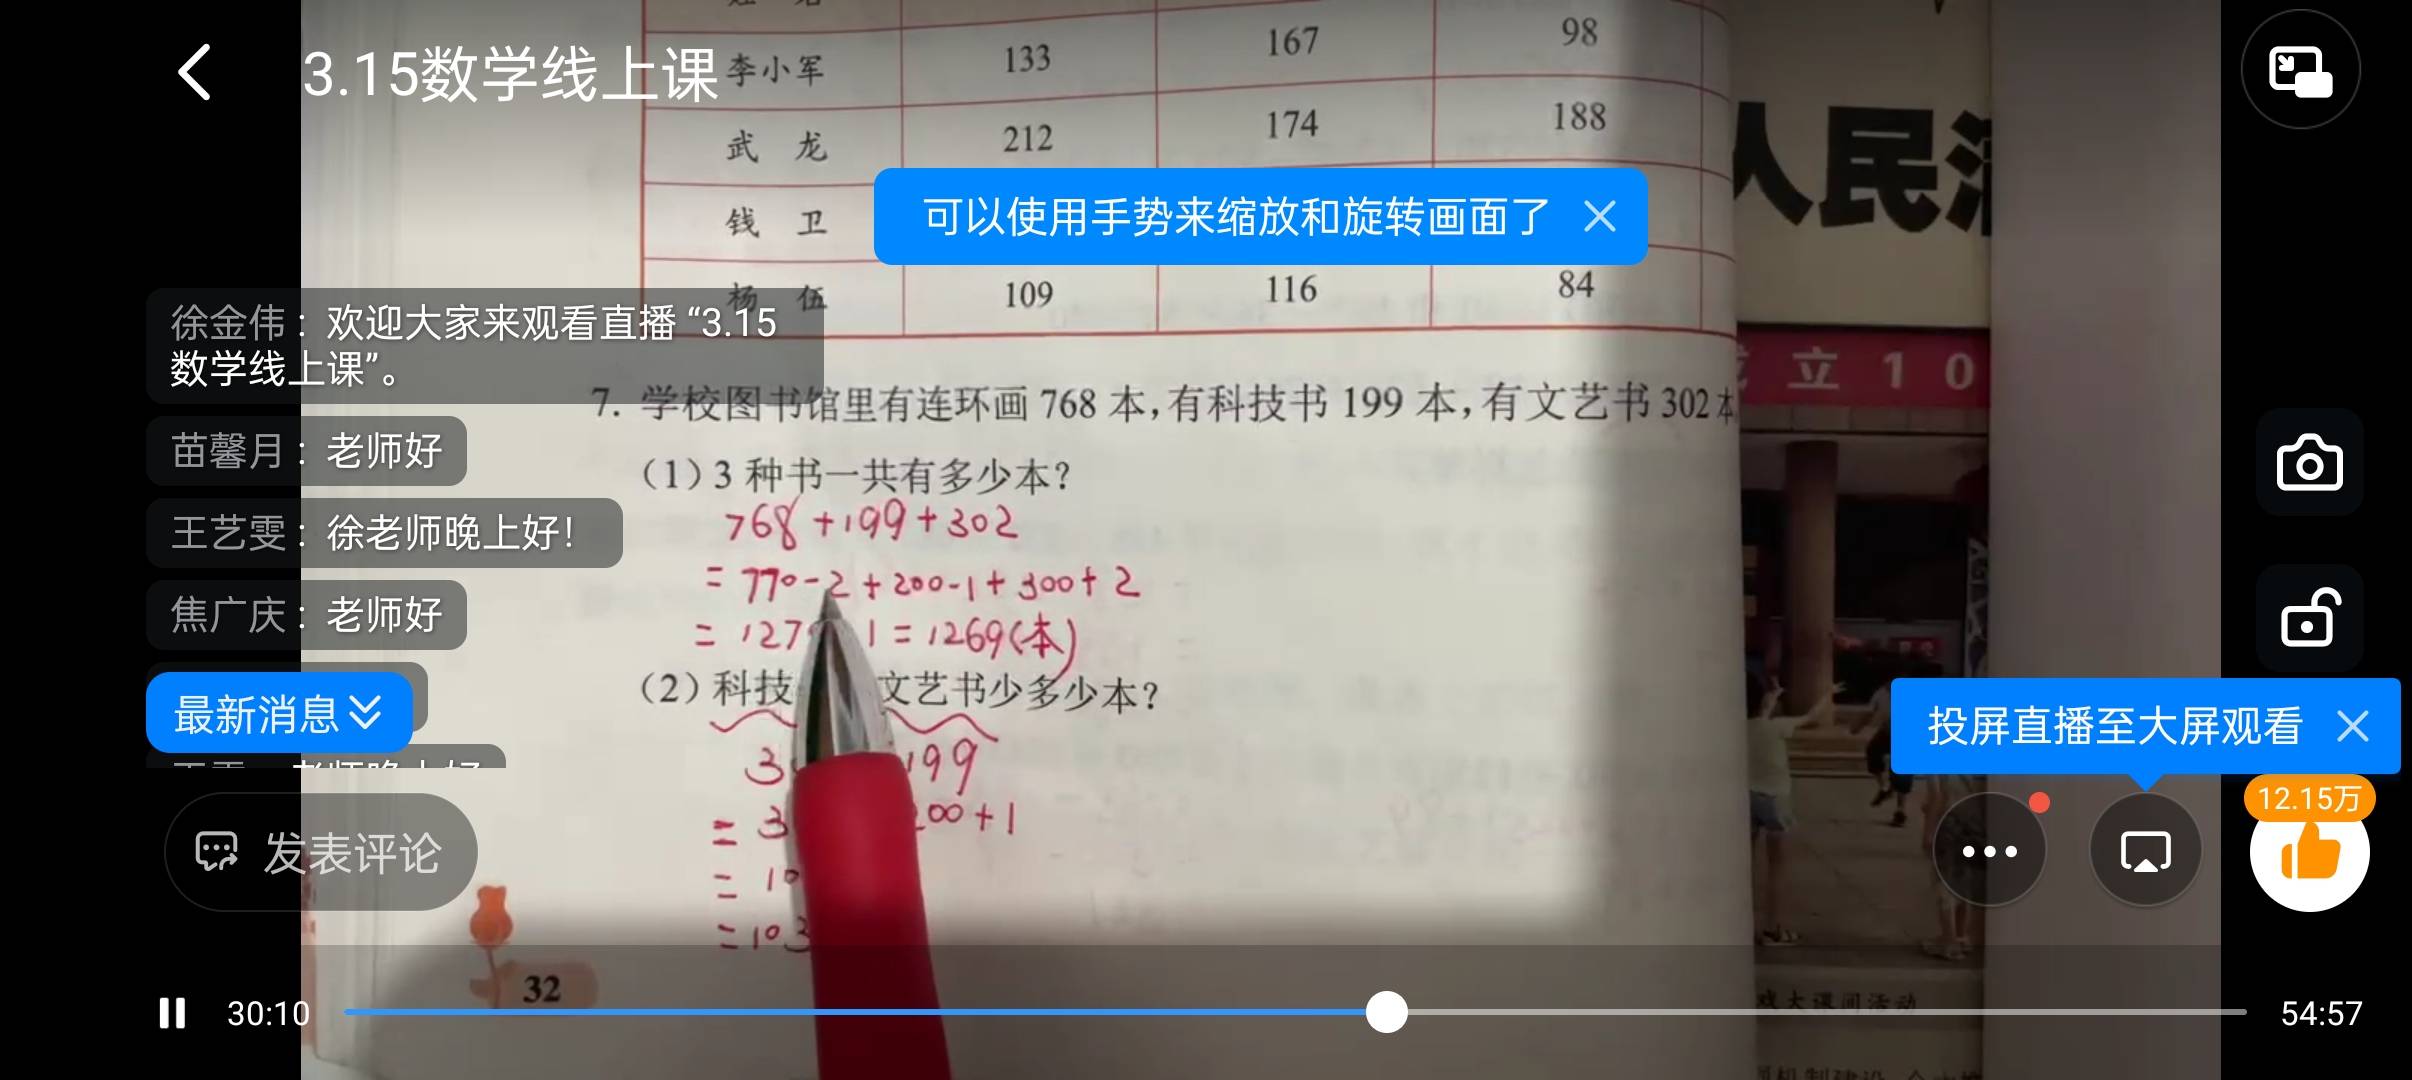 3.15数学线上课
李小军 133 167 98
武 龙 212 174 188
钱 卫
杨 伍 109 116 84
可以使用手势来缩放和旋转画面了
人民
立 1 0
徐金伟：欢迎大家来观看直播“3.15
数学线上课”。
苗馨月：老师好
王艺雯：徐老师晚上好！
焦广庆：老师好
最新消息
发表评论
7. 学校图书馆里有连环画 768 本,有科技书 199 本,有文艺书 302 本
(1) 3 种书一共有多少本?
768+199+302
=770-2+200-1+300+2
=127 1=1269(本)
(2) 科技 文艺书少多少本?
3 199
=3 200+1
=10
=103
32
投屏直播至大屏观看
12.15万
戏大课间活动
30:10
54:57